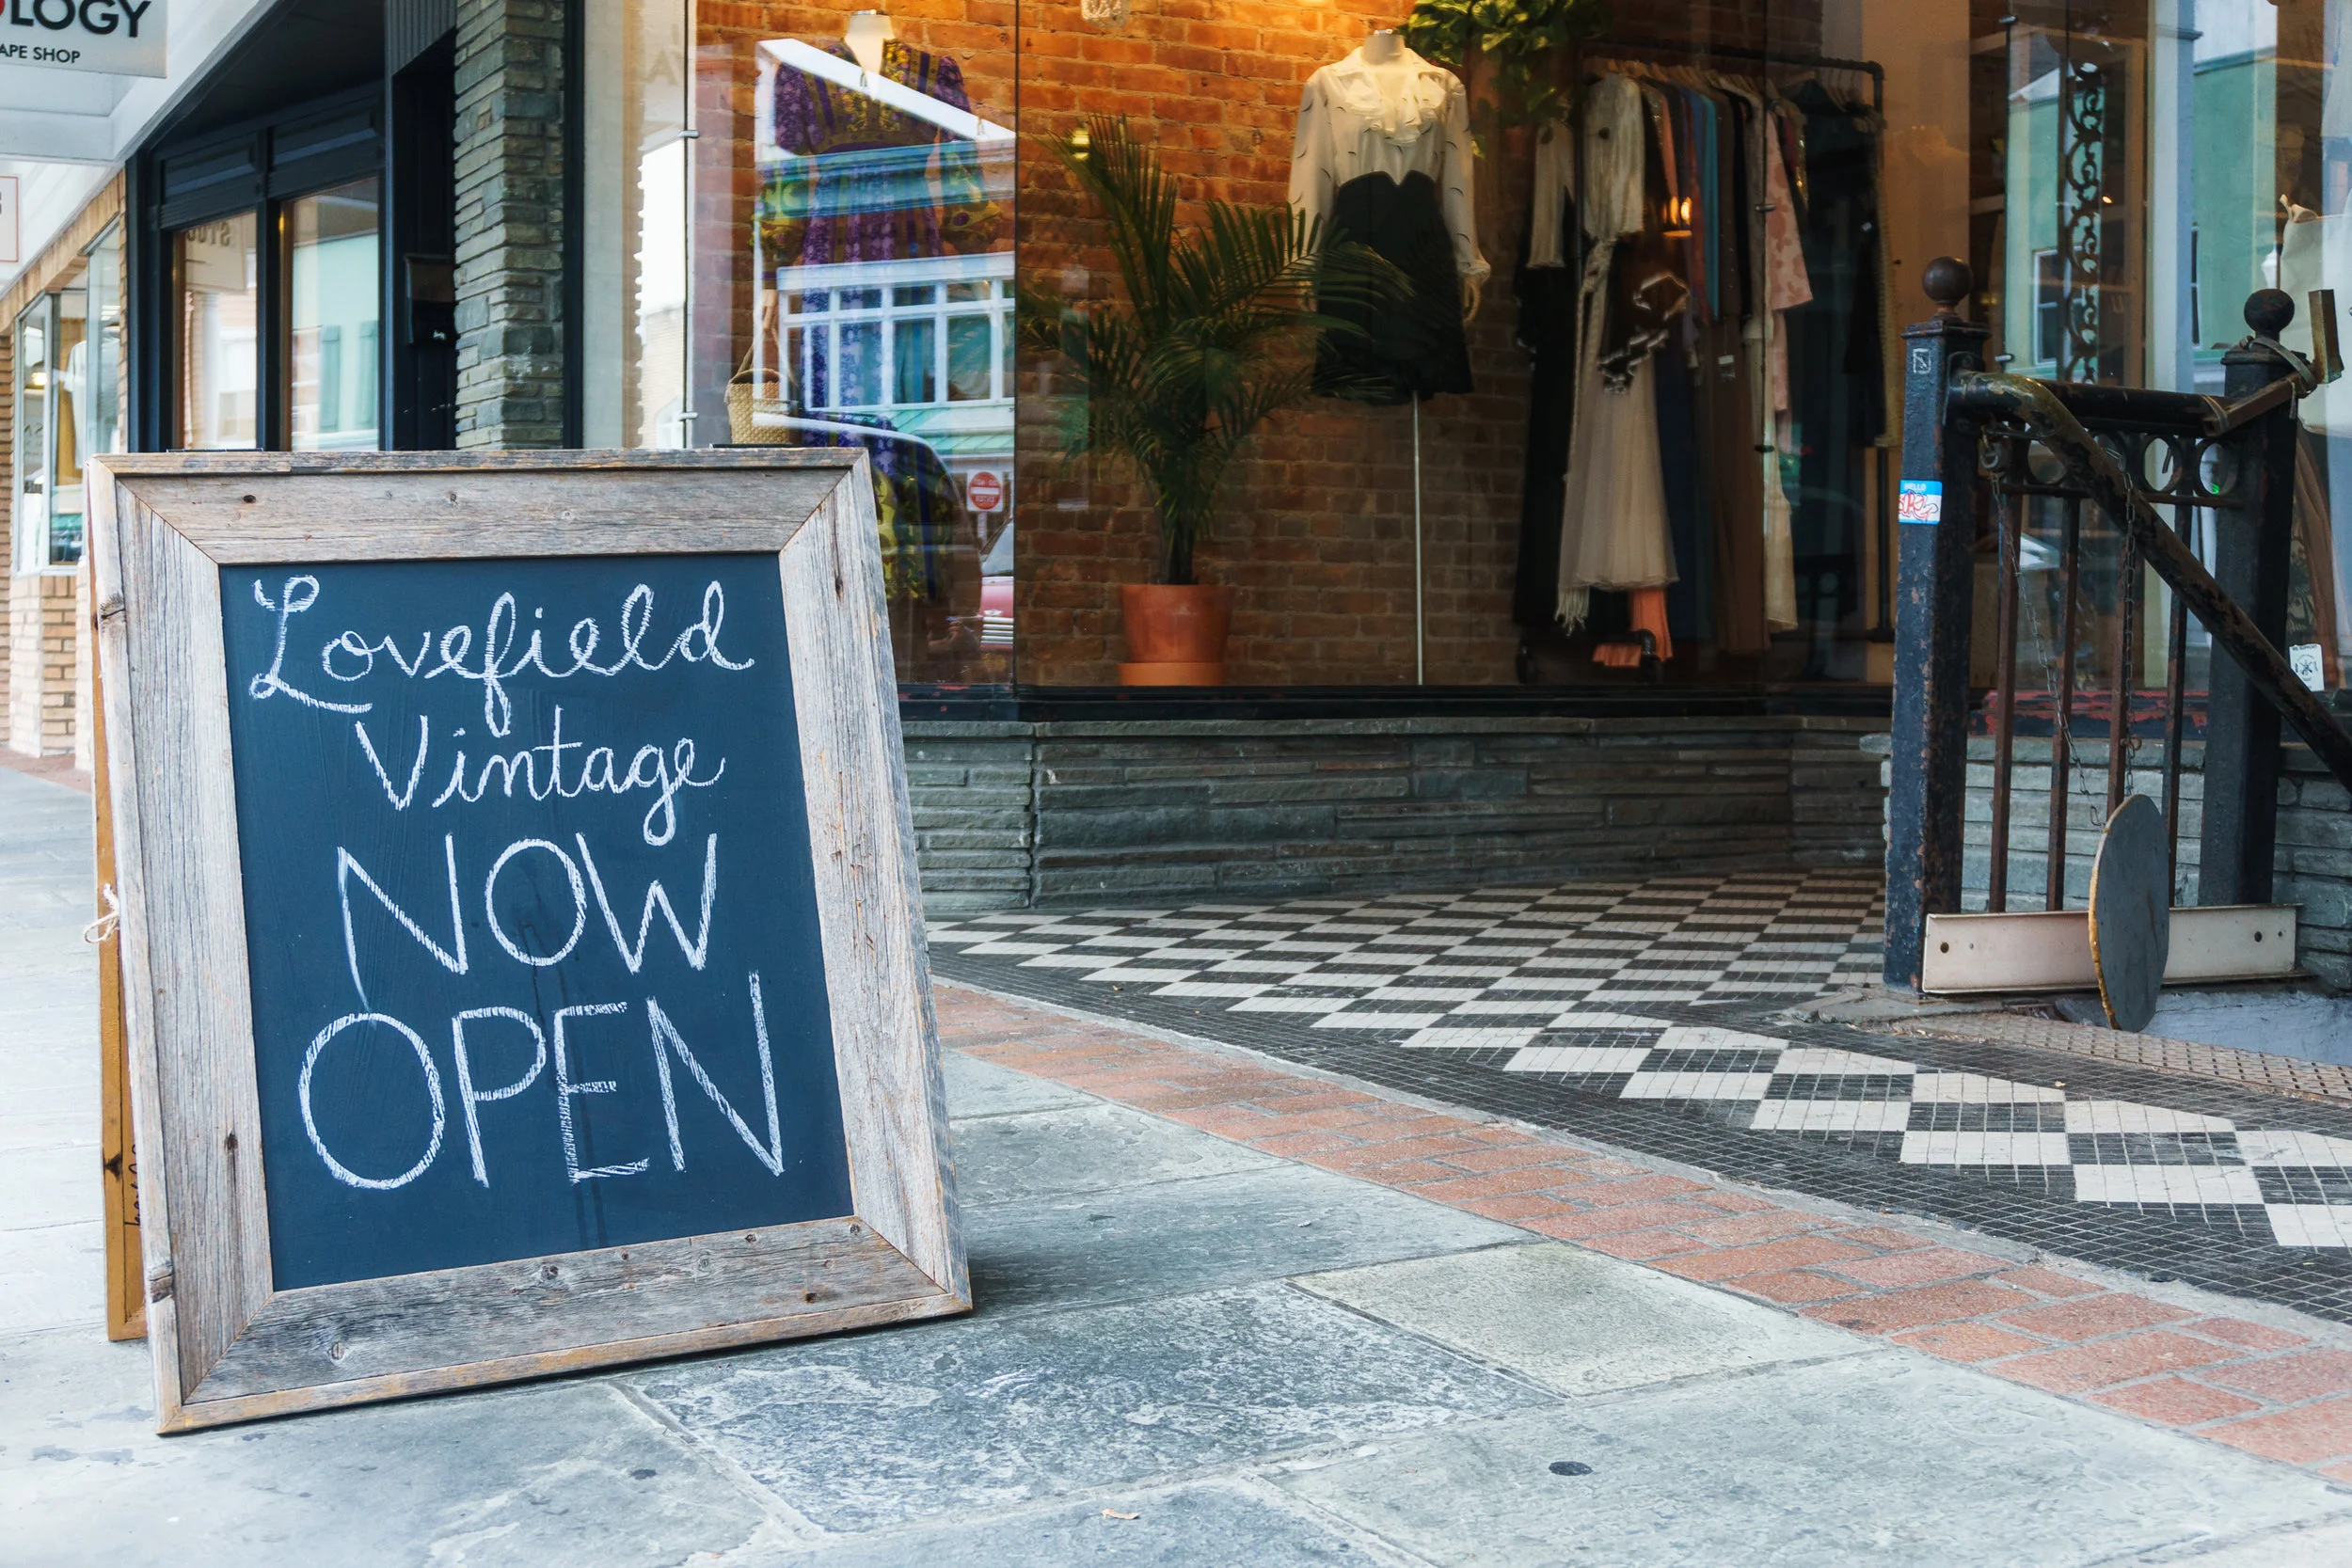 OLOGY
APE SHOP
Lovefield
Vintage
NOW
OPEN
HELLO